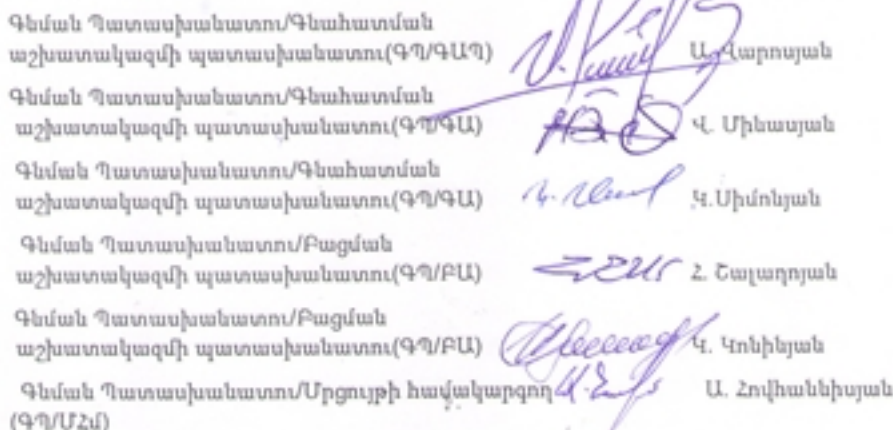 Գնման Պատասխանատու/Գնահատման
աշխատակազմի պատասխանատու(ԳՊ/ԳԱՊ) Ա. Վարոսյան
Գնման Պատասխանատու/Գնահատման
աշխատակազմի պատասխանատու(ԳՊ/ԳԱ) Վ. Մինասյան
Գնման Պատասխանատու/Գնահատման
աշխատակազմի պատասխանատու(ԳՊ/ԳԱ) Կ.Սիմոնյան
Գնման Պատասխանատու/Բացման
աշխատակազմի պատասխանատու(ԳՊ/ԲԱ) Հ. Շալաղոյան
Գնման Պատասխանատու/Բացման
աշխատակազմի պատասխանատու(ԳՊ/ԲԱ) Կ. Կոնինյան
Գնման Պատասխանատու/Մրցույթի համակարգող Ա. Հովհաննիսյան
(ԳՊ/ՄՀմ)